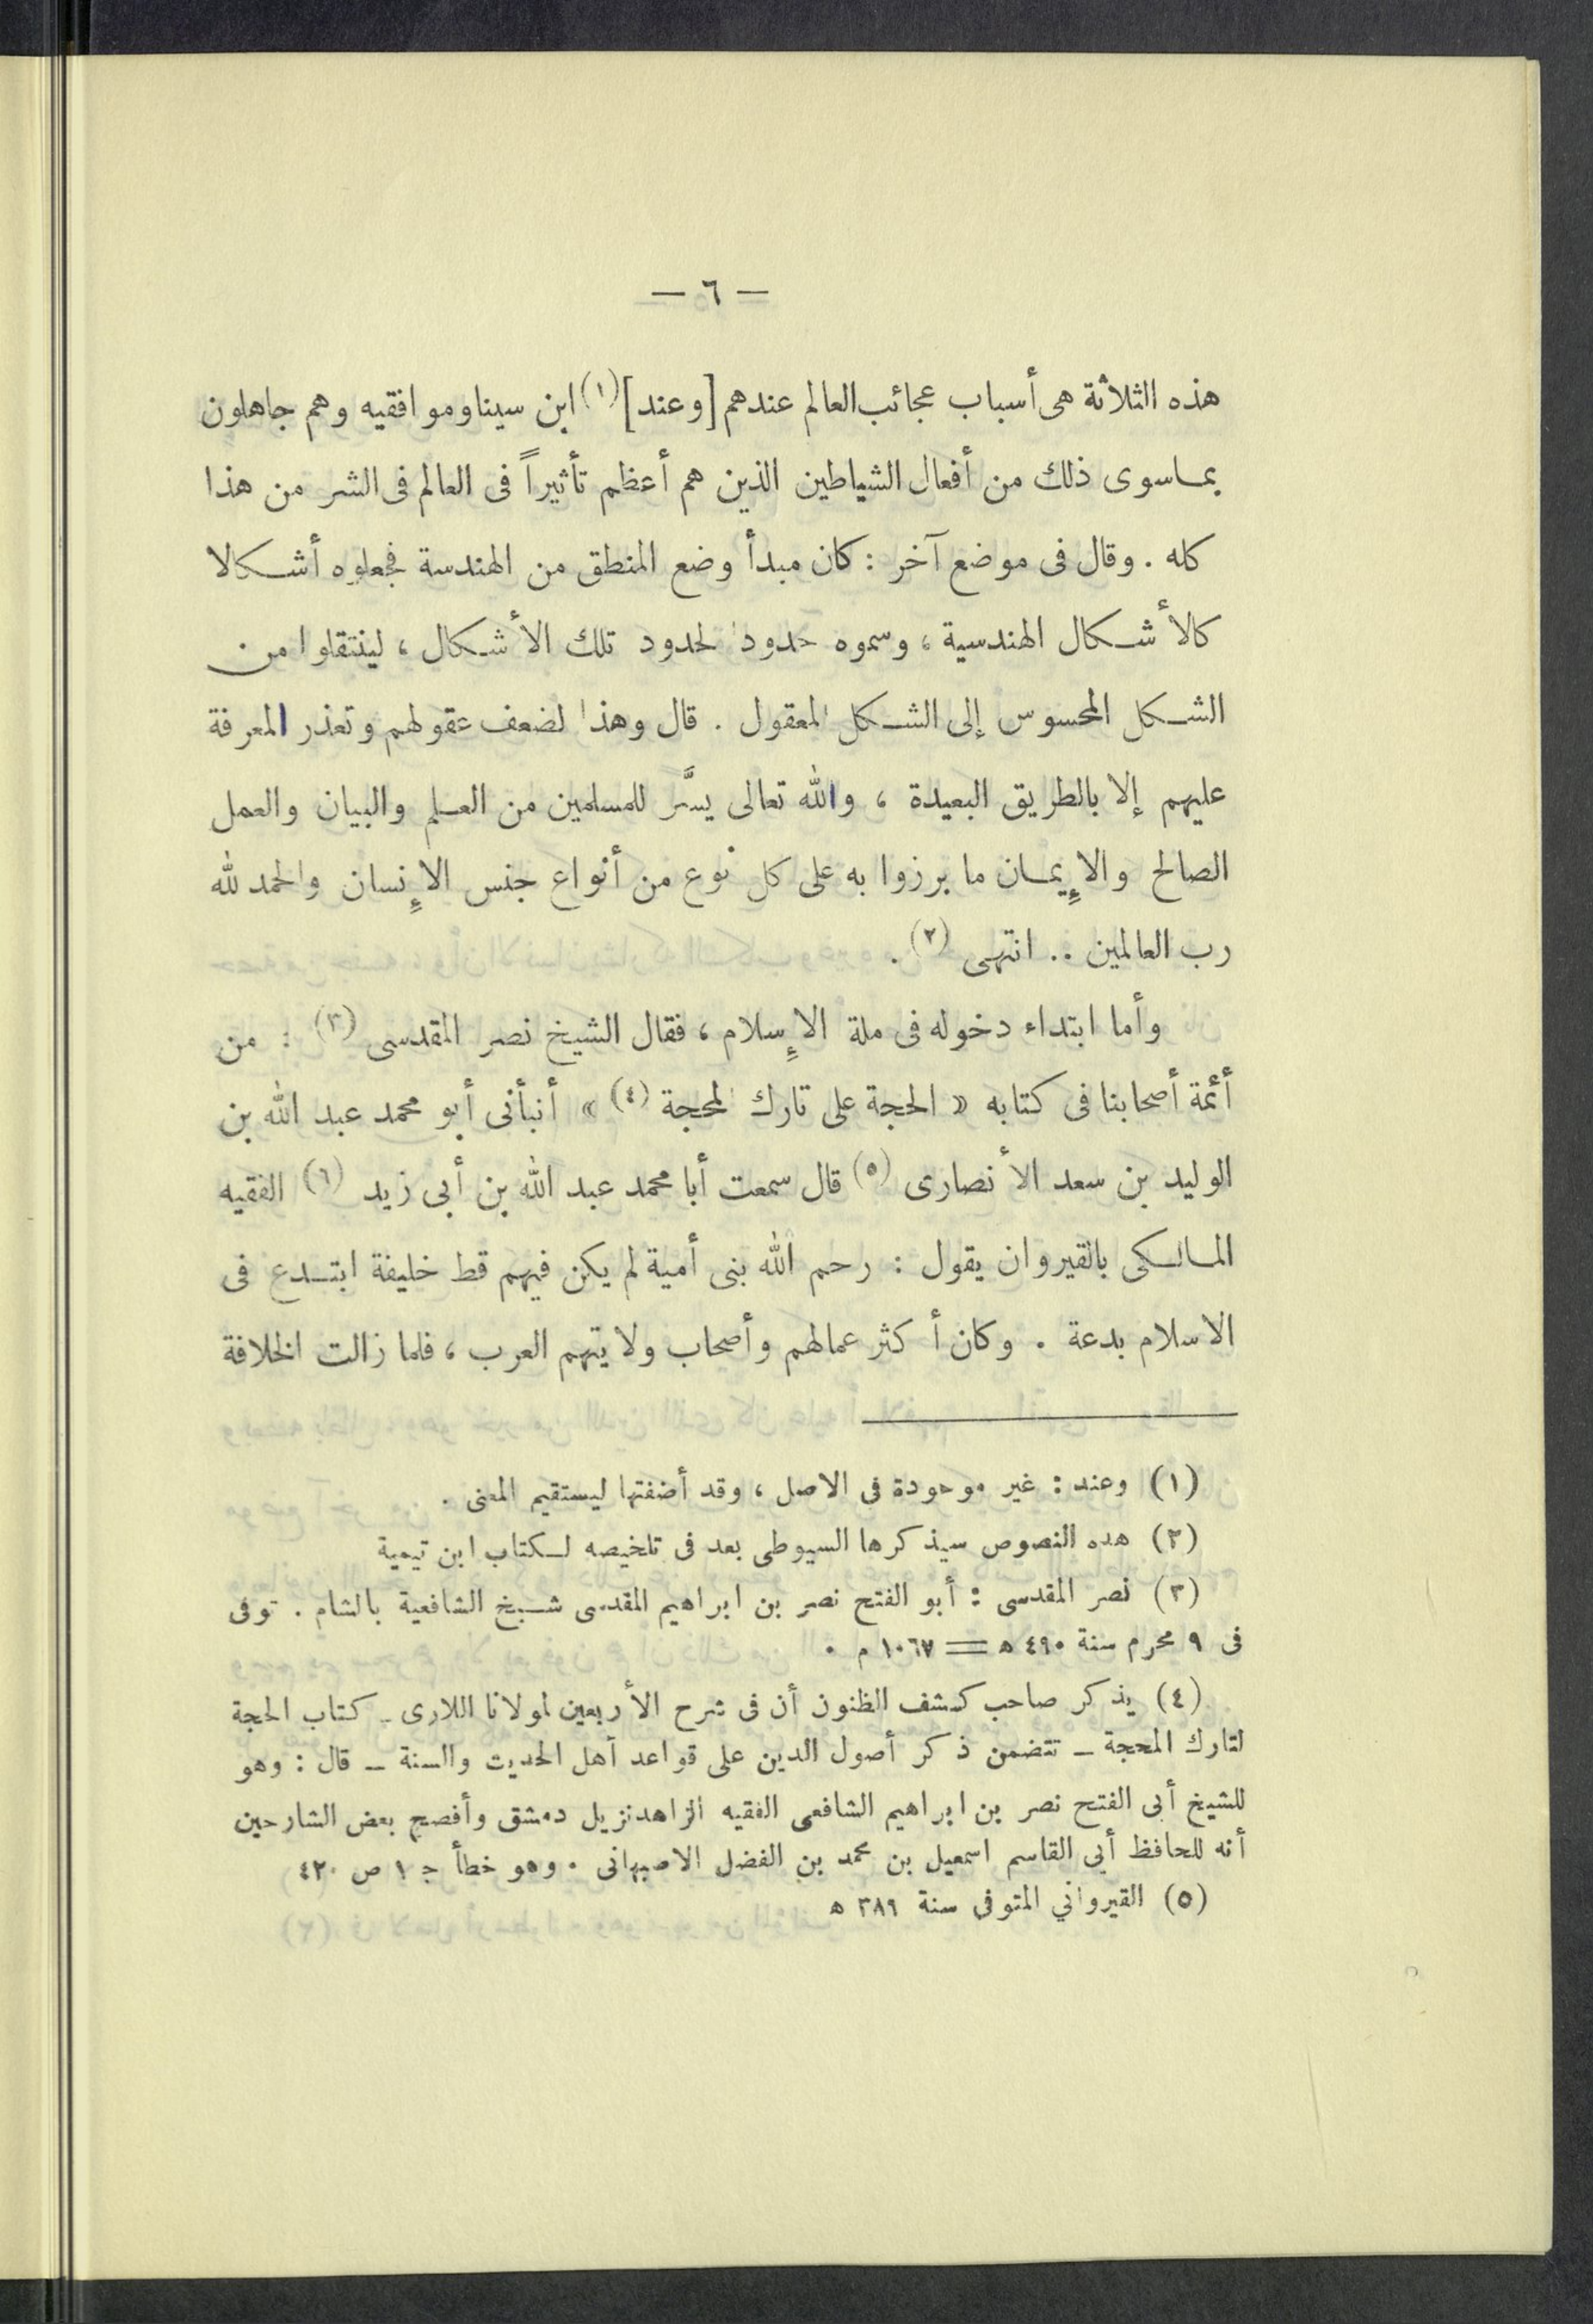 — ٦ —
هذه الثلاثة هى أسباب عجائب العالم عندهم [وعند] (١) ابن سينا وموافقيه وهم جاهلون
بمـاسوى ذلك من أفعال الشياطين الذين هم أعظم تأثيراً فى العالم فى الشر من هذا
كله . وقال فى موضع آخر : كان مبدأ وضع المنطق من الهندسة فجعلوه أشـكالا
كالأشـكال الهندسية ، وسموه حدودا لحدود تلك الأشـكال ، لينتقلوا من
الشـكل المحسوس إلى الشـكل المعقول . قال وهذا لضعف عقولهم وتعذر المعرفة
عليهم إلا بالطريق البعيدة ، والله تعالى يسَّر للمسلمين من العـلم والبيان والعمل
الصالح والإيمـان ما برزوا به على كل نوع من أنواع جنس الإنسان والحمد لله
رب العالمين .. انتهى (٢) .
وأما ابتداء دخوله فى ملة الإسلام ، فقال الشيخ نصر المقدسى (٣) : من
أئمة أصحابنا فى كتابه « الحجة على تارك المحجة (٤) » أنبأنى أبو محمد عبد الله بن
الوليد بن سعد الأنصارى (٥) قال سمعت أبا محمد عبد الله بن أبى زيد (٦) الفقيه
المـالـكى بالقيروان يقول : رحم الله بنى أمية لم يكن فيهم قط خليفة ابتـدع فى
الاسلام بدعة . وكان أكثر عمالهم وأصحاب ولايتهم العرب ، فلما زالت الخلافة
(١) وعند : غير موجودة فى الاصل ، وقد أضفتها ليستقيم المعنى .
(٢) هذه النصوص سيذكرها السيوطى بعد فى تلخيصه لـكتاب ابن تيمية
(٣) نصر المقدسى : أبو الفتح نصر بن ابراهيم المقدسى شـيخ الشافعية بالشام . توفى
فى ٩ محرم سنة ٤٩٠ ه = ١٠٦٧ م .
(٤) يذكر صاحب كشف الظنون أن فى شرح الأربعين لمولانا اللارى ـ كتاب الحجة
لتارك المحجة ـ تتضمن ذكر أصول الدين على قواعد أهل الحديث والسنة ـ قال : وهو
للشيخ أبى الفتح نصر بن ابراهيم الشافعى الفقيه الزاهد نزيل دمشق وأفصح بعض الشارحين
أنه للحافظ أبى القاسم اسمعيل بن محمد بن الفضل الاصبهانى . وهو خطأ ج ١ ص ٤٢٠
(٥) القيرواني المتوفى سنة ٣٨٩ ه